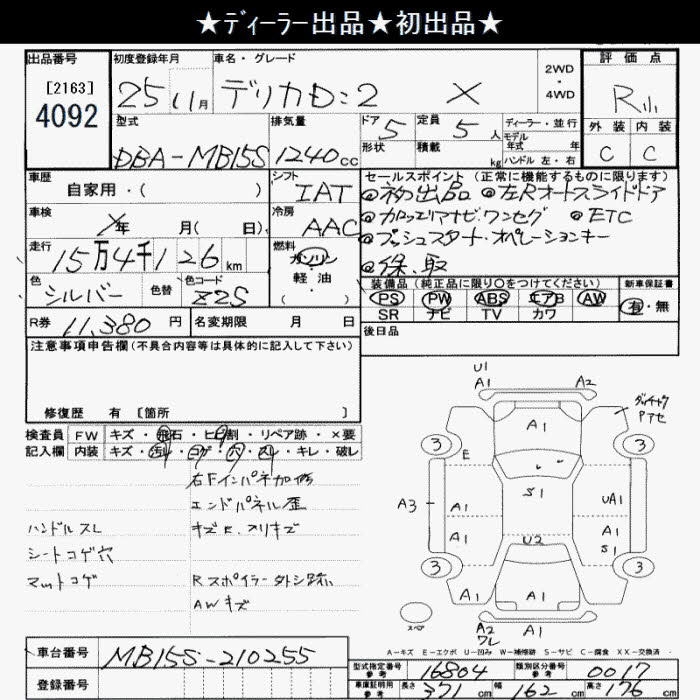 ★ディーラー出品★初出品★
出品番号 初度登録年月 車名・グレード 評価点
[2163]
4092
25 11月 デリカD:2 X
2WD
・
4WD
R小
型式 排気量 ドア 5 定員 5人 ディーラー・並行
モデル
年式 年
形状 積載 kg ハンドル 左・右
外装 内装
C C
DBA-MB15S 1240cc
車歴 自家用・( )
シフト IAT
車検 ✗年 月( 日)
冷房 AAC
走行 15万4千126km
燃料 ガソリン
軽油
・( )
色 シルバー 色替 色コード Z2S
R券 11,380円 名変期限 月 日
セールスポイント(正常に機能するものに限ります)
◎初出品 ◎左Rオートスライドドア
◎カロッツェリアナビワンセグ ◎ETC
◎プッシュスタート・オペレーションキー
◎保、取
装備品(純正品に限り〇をつけてください) 新車保証書
PS PW ABS エアB AW
SR ナビ TV カワ
有・無
後日品
注意事項申告欄(不具合内容等は具体的に記入して下さい)
修復歴 有 [箇所 ]
検査員 FW キズ・飛石・ヒビ割・リペア跡・×要
記入欄 内装 キズ・汚れ・コゲ・穴・スレ・キレ・破レ
右Fインパネ加修
エンドパネル歪
ハンドルスレ キズE、スリキズ
シートコゲ穴
マットコゲ Rスポイラー外シ跡
AWキズ
U1
A1 A2
A1
3 3
E
S1
A3 A1 UA1
A1 A1
S1
U2
3 3
A1 A1 A1
スペア
A2 A1
ワレ
A-キズ E-エクボ U-凹み W-補修跡 S-サビ C-腐食 XX-交換済
車台番号 MB15S-210255
登録番号
型式指定番号 参考 16804 類別区分番号 参考 0017
車庫証明用 参考 長さ 371cm 幅 162cm 高さ 176cm